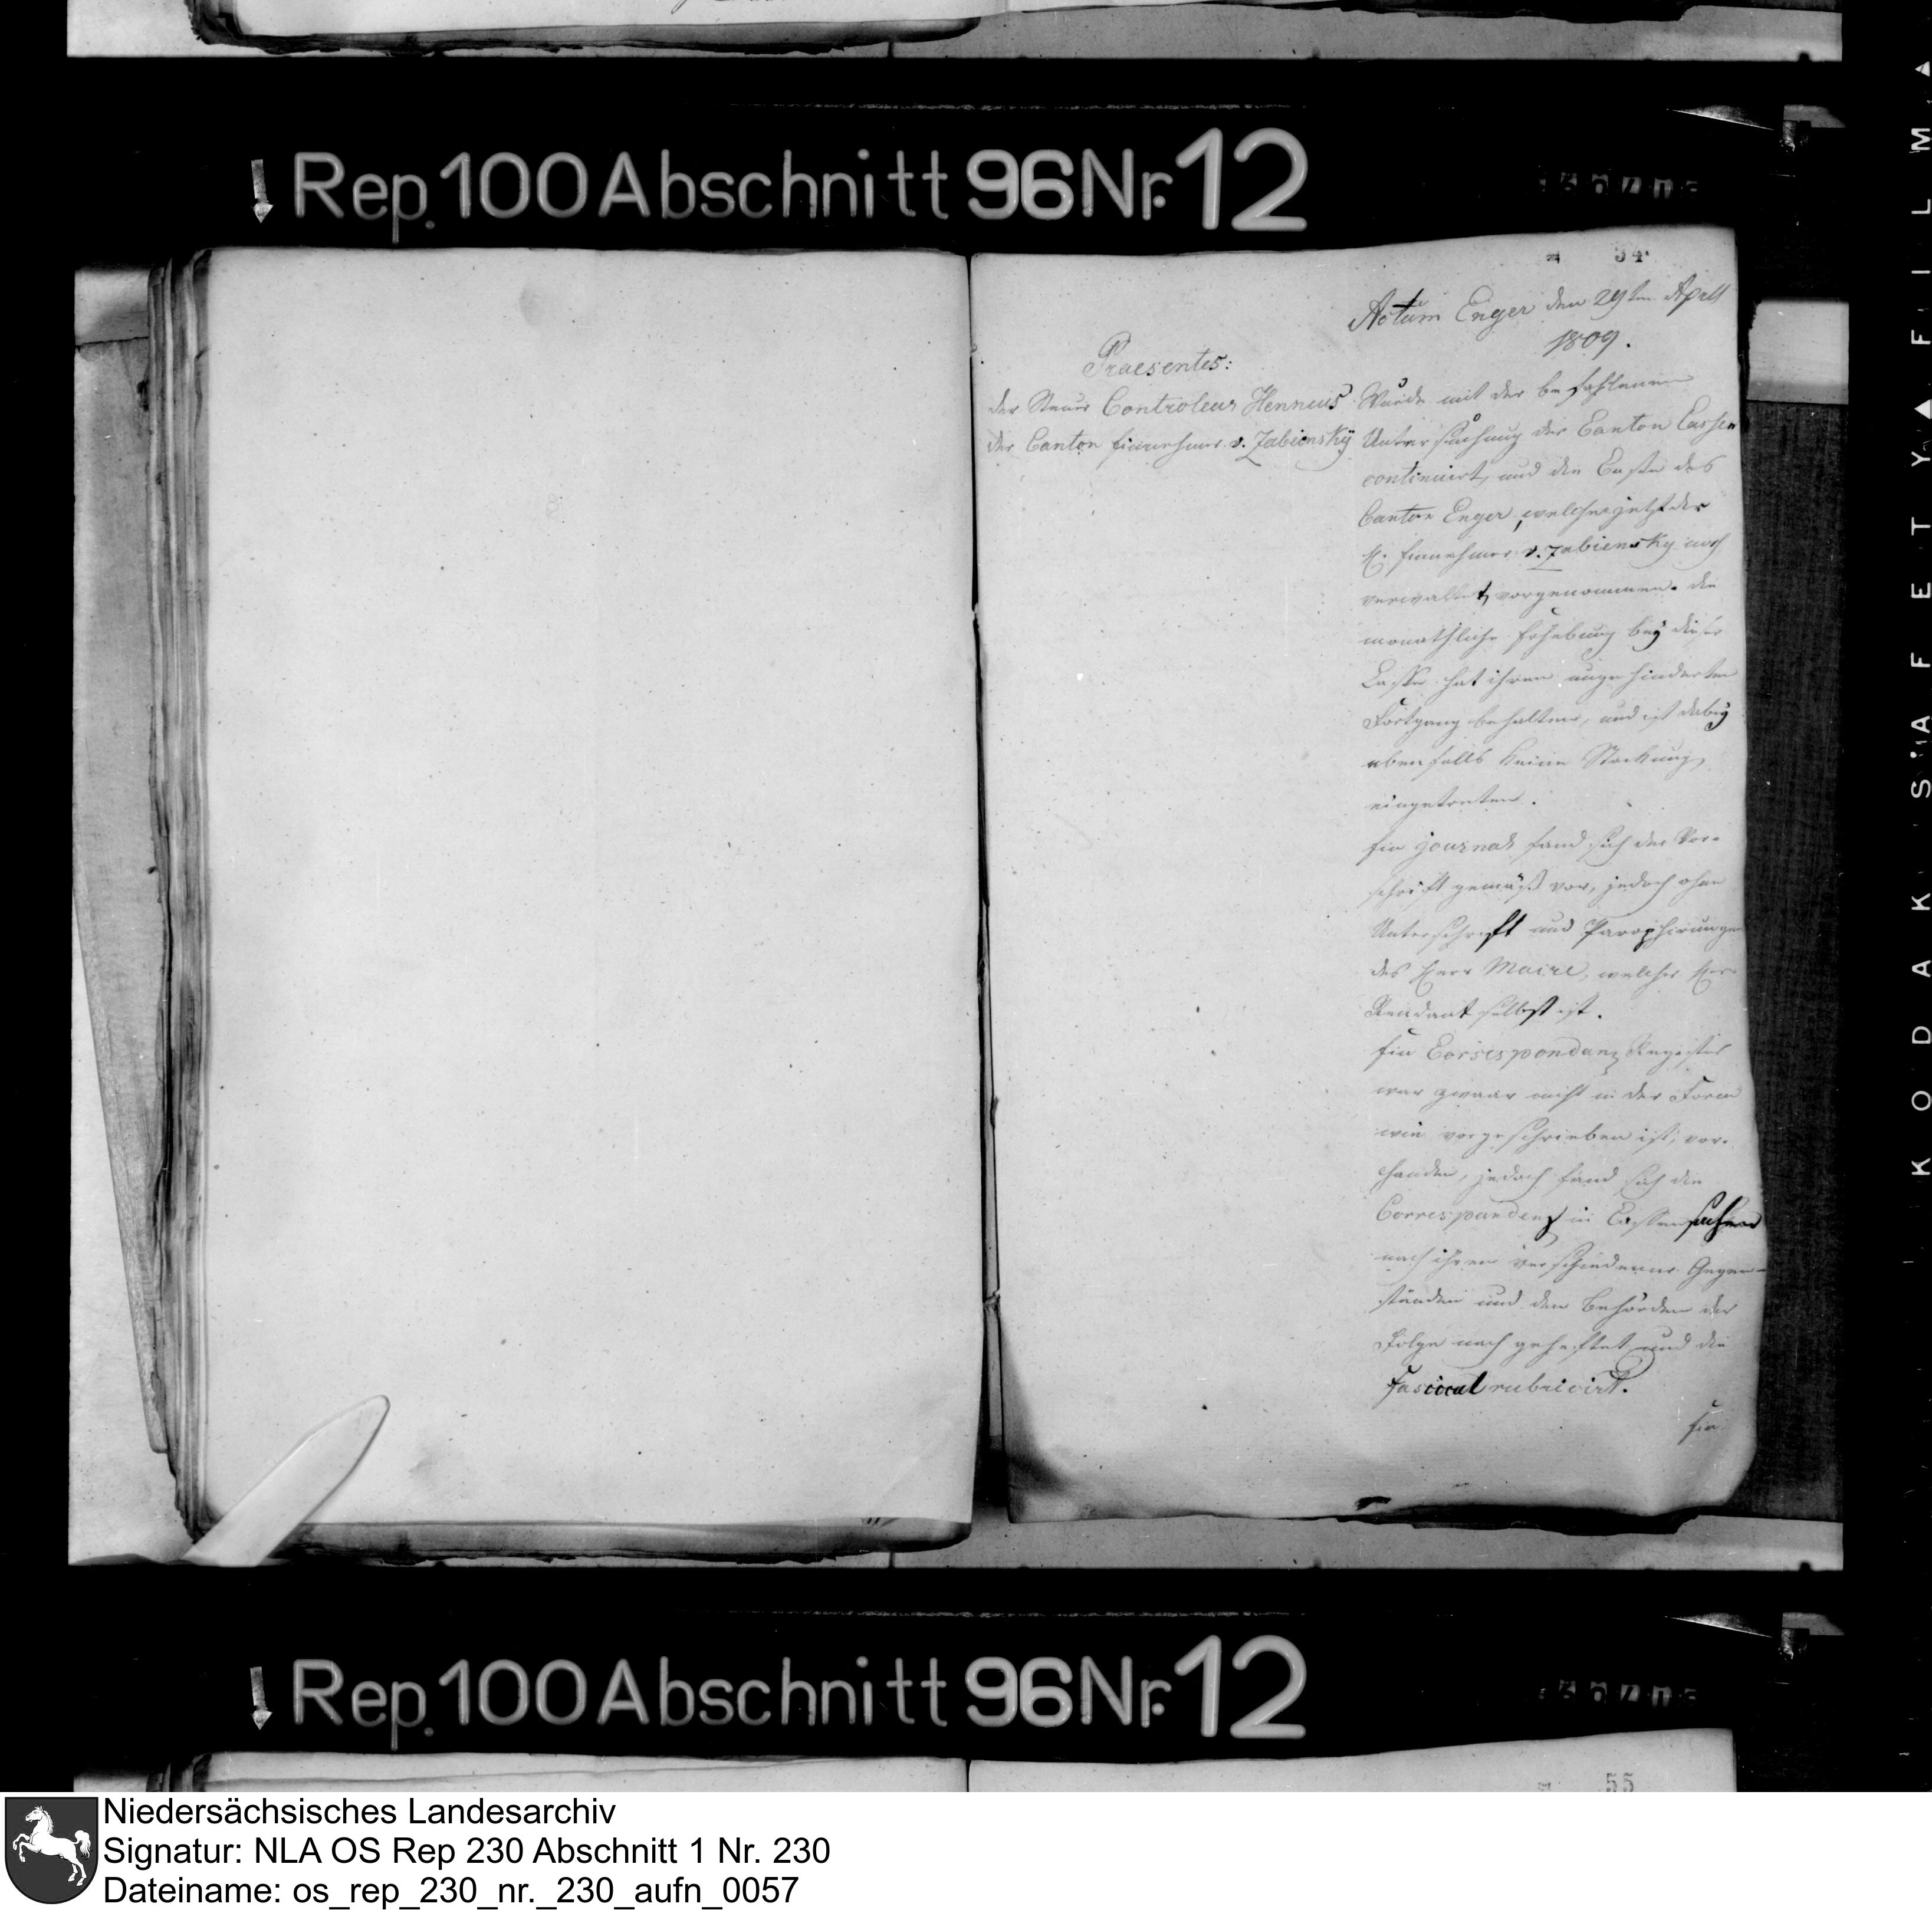 Rep. 100 Abschnitt 96 Nr. 12
54
Actum Enger den 29ten April
1809.
Praesentes:
der Steuer Controleur Hennuis
der Canton Einnehmer v. Zabiensky
Wurde mit der befohlenen
Untersuchung der Canton Cassen
continuirt, und die Casse des
Canton Enger, welche jetzt der
H. Einnehmer v. Zabiensky noch
verwaltet, vorgenommen. die
monathliche Erhebung bey dieser
Casse hat ihren ungehinderten
Fortgang behalten, und ist dabey
ebenfalls keine Stockung
eingetreten.
Ein journal fand sich der Vor-
schrift gemäß vor, jedoch ohne
Unterschrift und Paraphirungen
des Herr Maire, welcher Herr
Rendant selbst ist.
Ein Correspondenz Register
war zwaar nicht in der Form
wie vorgeschrieben ist, vor-
handen, jedoch fand sich die
Correspondenz in Cassensachen
nach ihren verschiedenen Gegen-
ständen und den Behörden der
Folge nach geheftet und die
Fascicul rubricirt.
Ein
Rep. 100 Abschnitt 96 Nr. 12
55
KODAK SAFETY FILM
Niedersächsisches Landesarchiv
Signatur: NLA OS Rep 230 Abschnitt 1 Nr. 230
Dateiname: os_rep_230_nr._230_aufn_0057